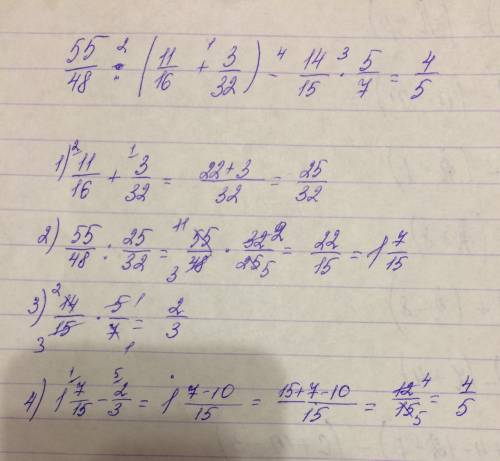 55/48 :² (11/16 +¹ 3/32) -⁴ 14/15 ·³ 5/7 = 4/5
1) ²11/16 + ¹3/32 = 22+3/32 = 25/32
2) 55/48 : 25/32 = ¹¹55/₃48 · 32²/25₅ = 22/15 = 1 7/15
3) ²14/₃15 · 5¹/7₁ = 2/3
4) 1 ¹7/15 - ⁵2/3 = 1 7-10/15 = 15+7-10/15 = 12⁴/15₅ = 4/5